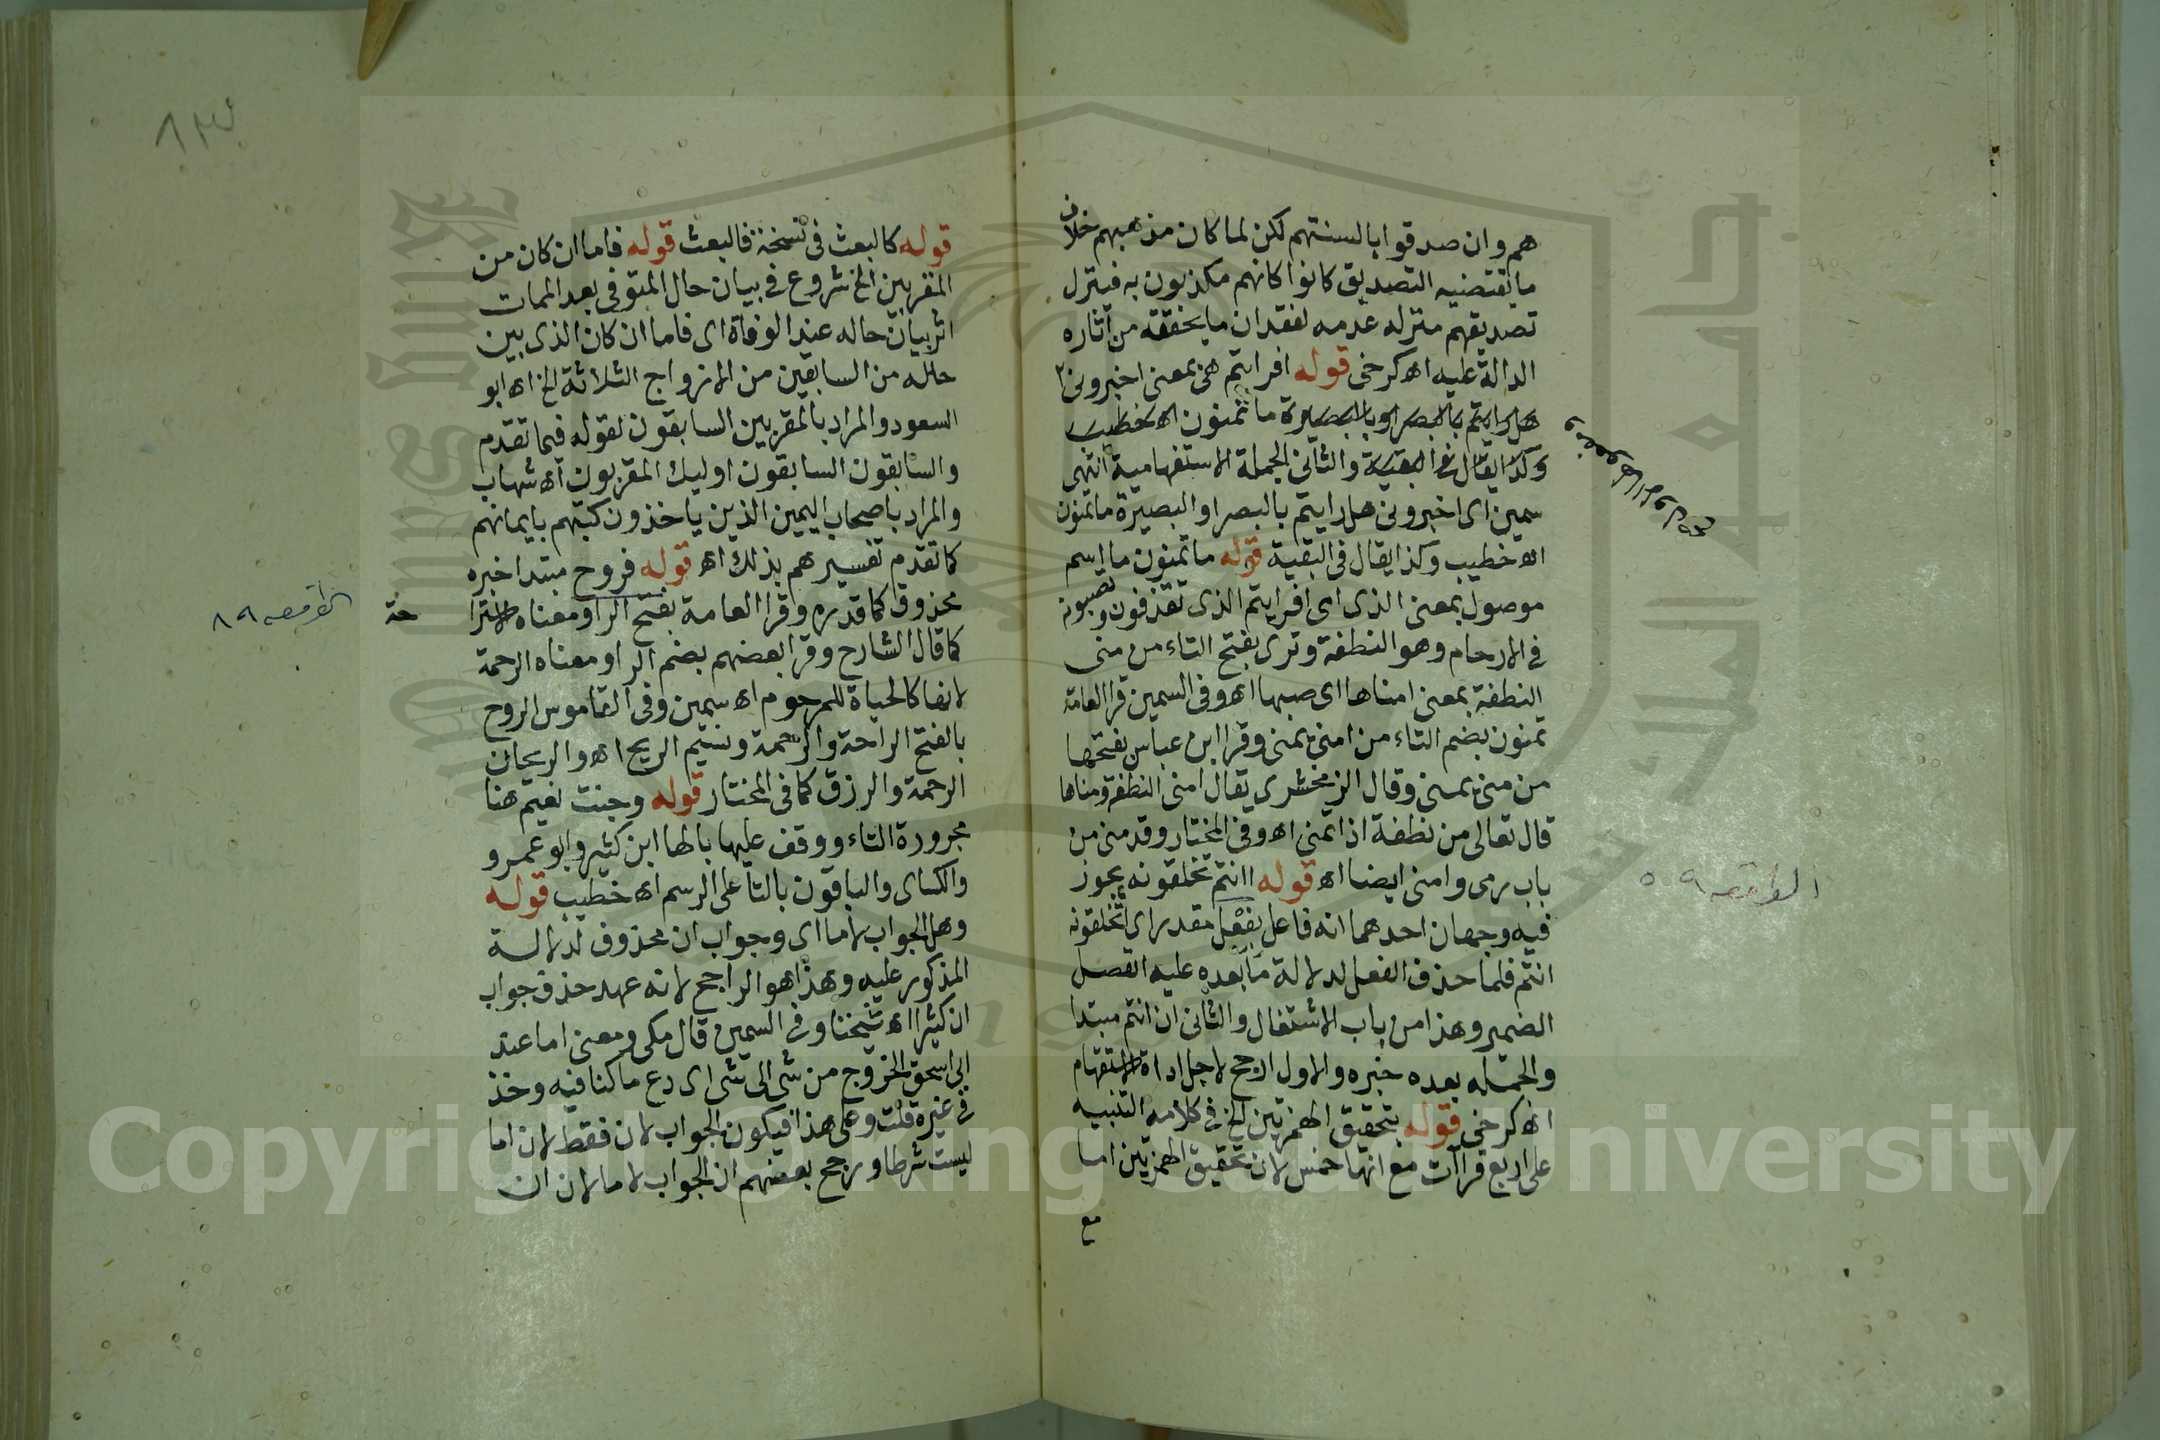 هم وان صدقوا بالسنتهم لكن لما كان مذهبهم خلاف
ما يقتضيه التصديق كانوا كانهم مكذبون به فينزل
تصديقهم منزلة عدمه لفقدان ما يحققه من آثاره
الدالة عليه اه كرخى قوله افرايتم هى بمعنى اخبرونى
هل رايتم بالبصر او بالبصيرة ما تمنون اه خطيب
وكذا يقال فى البقية والثانى الجملة الاستفهامية انتهى
سمين اى اخبرونى هل رايتم بالبصر او البصيرة ما تمنون
اه خطيب وكذا يقال فى البقية قوله ما تمنون ما اسم
موصول بمعنى الذى اى افرايتم الذى تقذفون وتصبونه
فى الارحام وهو النطفة وقرى بفتح التاء من منى
النطفة بمعنى امناها اى صبها اه وفى السمين قرا العامة
تمنون بضم التاء من امنى يمنى وقرا ابن عباس بفتحها
من منى يمنى وقال الزمخشرى يقال امنى النطفة ومناها
قال تعالى من نطفة اذا تمنى اه وفى المختار وقد منى من
باب رمى وامنى ايضا اه قوله اانتم تخلقونه يجوز
فيه وجهان احدهما انه فاعل بفعل مقدر اى اتخلقونه
انتم فلما حذف الفعل لدلالة ما بعده عليه انفصل
الضمير وهذا من باب الاشتغال والثانى ان انتم مبتدا
والجملة بعده خبره والاول ارجح لاجل اداة الاستفهام
اه كرخى قوله بتحقيق الهمزتين الخ فى كلامه التنبيه
على اربع قراآت مع انها خمس لان تحقيق الهمزتين اما
مع
الواقعة ٥٩
قوله كالبعث فى نسخة فالبعث قوله فاما ان كان من
المقربين الخ شروع فى بيان حال المتوفى بعد الممات
اثر بيان حاله عند الوفاة اى فاما ان كان الذى بين
حاله من السابقين من الازواج الثلاثة الخ اه ابو
السعود والمراد بالمقربين السابقون لقوله فيما تقدم
والسابقون السابقون اوليك المقربون اه شهاب
والمراد باصحاب اليمين الذين ياخذون كتبهم بايمانهم
كما تقدم تفسيرهم بذلك اه قوله فروح مبتدا خبره
محذوف كما قدره وقرا العامة بفتح الراو معناه الاسترا
حة
كما قال الشارح وقرا بعضهم بضم الراو معناه الرحمة
لانها كالحياة للمرحوم اه سمين وفى القاموس الروح
بالفتح الراحة والرحمة ونسيم الريح اه والريحان
الرحمة والرزق كما فى المختار قوله وجنت نعيم هنا
مجرورة التاء ووقف عليها بالها ابن كثير وابو عمرو
والكساى والباقون بالتا على الرسم اه خطيب قوله
وهل الجواب لاما اى وجواب ان محذوف لدلالة
المذكور عليه وهذا هو الراجح لانه عهد حذف جواب
ان كثيرا اه شيخنا وفى السمين قال مكى ومعنى اما عند
ابى اسحق الخروج من شى الى شى اى دع ما كنا فيه وخذ
فى غيره قلت وعلى هذا فيكون الجواب لان فقط لان اما
ليست شرطا ورجح بعضهم ان الجواب لاما لان ان
الواقعة ٨٩
Copyright © King Saud University